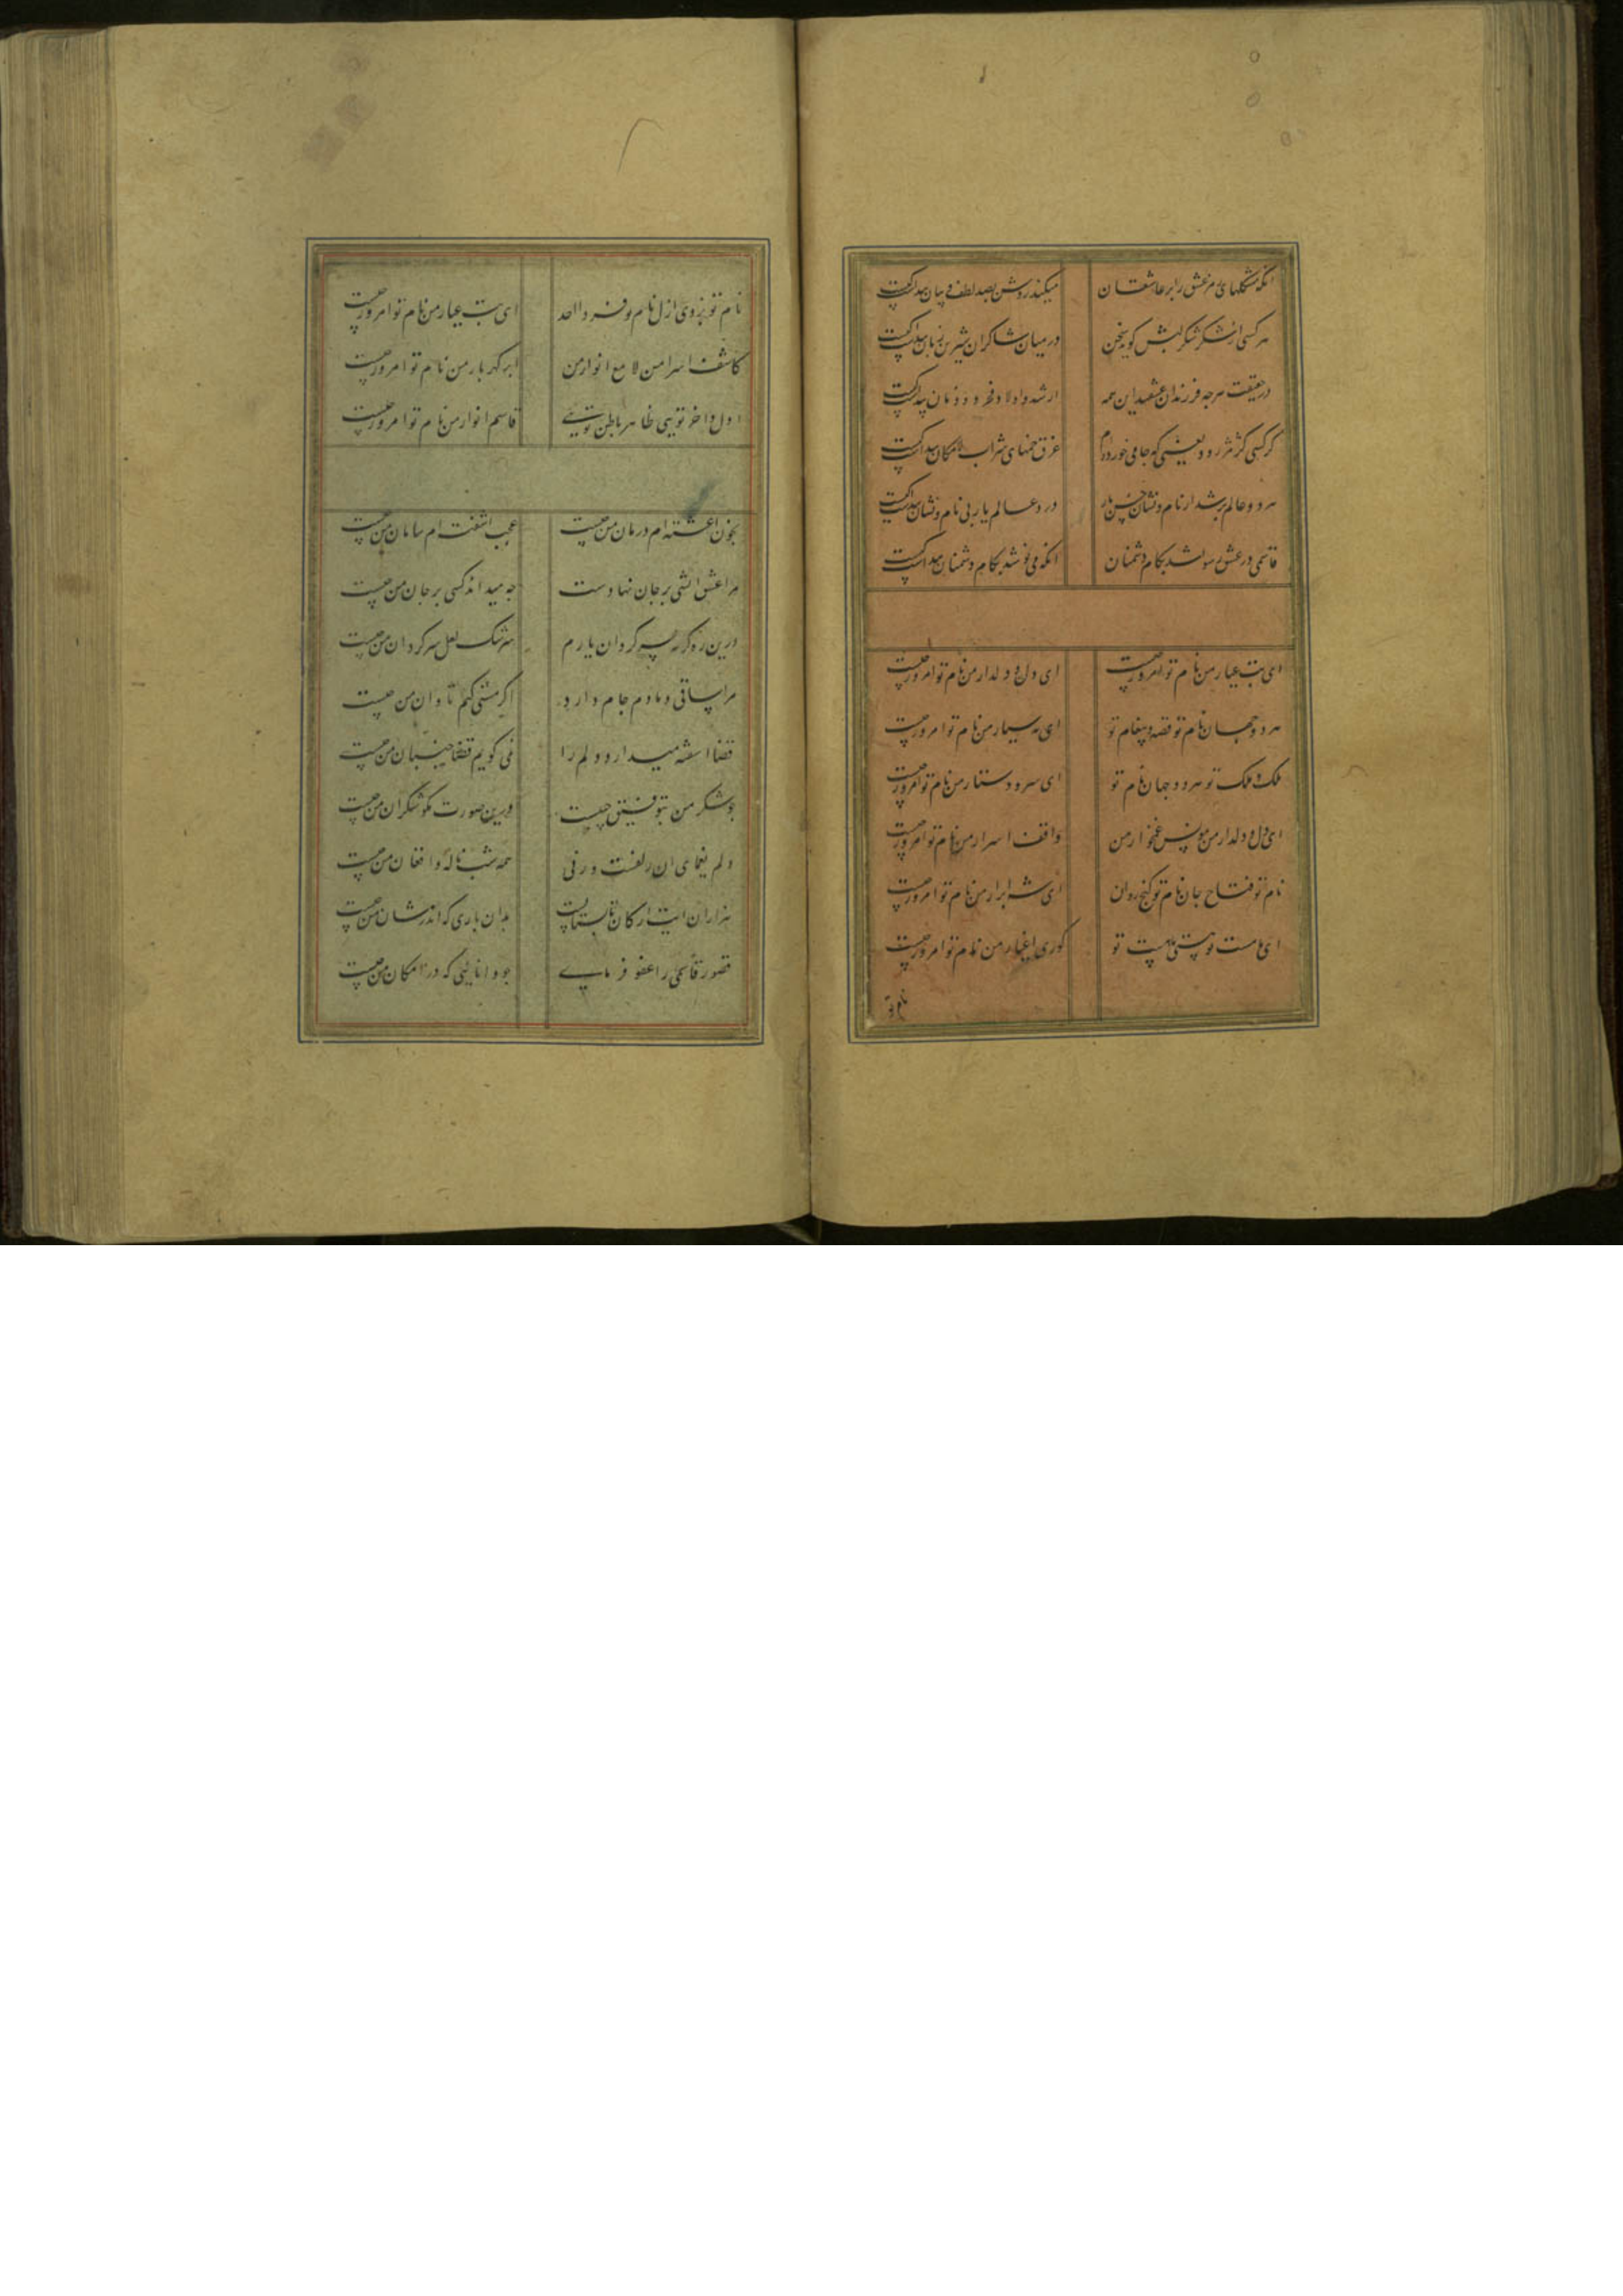 انکه مشکلهای عشق را بر عاشقان میکند روشن بصد لطف و بیان پیداکیست
هر کسی از شکر شکر لبش کوید سخن در میان شاکران شیرین زبان پیداکیست
در حقیقت هرجه فرزندان عشقند این همه ارشد اولاد و دودمان پیداکیست
هر کسی که جامی خورده‌ام غرق خمهای شراب لامکان پیداکیست
هر دو عالم پر شد از نام و نشان حسن یار در دو عالم یار بی نام و نشان پیداکیست
قاسمی در عشق رسوا شد بکام دشمنان انکه می نوشد بکام دشمنان پیداکیست
ای بت عیار من نام تو امروز چیست ای دل و دلدار من نام تو امروز چیست
هر دو جهان نام تو قصه و پیغام تو ای مه سیار من نام تو امروز چیست
ملک و ملک تو هر دو جهان نام تو ای سر و دستار من نام تو امروز چیست
ای دل و دلدار من مونس غمخوار من واقف اسرار من نام تو امروز چیست
نام تو فتاح جان نام تو کنج روان ای شه ابرار من نام تو امروز چیست
ای ما مست تو هستی ما هست تو کوری اغیار من نام تو امروز چیست
نام تو
نام تو بزدی ازل نام تو فرد و احد ای بت عیار من نام تو امروز چیست
کاشف اسرار من لامع انوار من ابر کهربار من نام تو امروز چیست
اول و اخر تویی ظاهر و باطن تویی قاسم انوار من نام تو امروز چیست
بخون اغشته‌ام درمان من چیست عجب اشفته‌ام سامان من چیست
مرا عشق اتشی بر جان نهادست جه میداند کسی بر جان من چیست
درین ره کرنه سرکردان یارم سرشک لعل سرکردان من چیست
مرا ساقی دمادم جام دارد اکر مستی کنم تاوان من چیست
قضا اشفته میدارد دلم را نمی کویم قضا جنبان من چیست
جو شکر من بتوفیق چیست درین صورت بکو شکران من چیست
دلم یغمای ان زلفست ورنی همه شب ناله و افغان من چیست
هزاران ایت ارکان تابستانست بدان باری که اندر شان من چیست
قصور قاسمی را عفو فرمای جو دانایی که در امکان من چیست